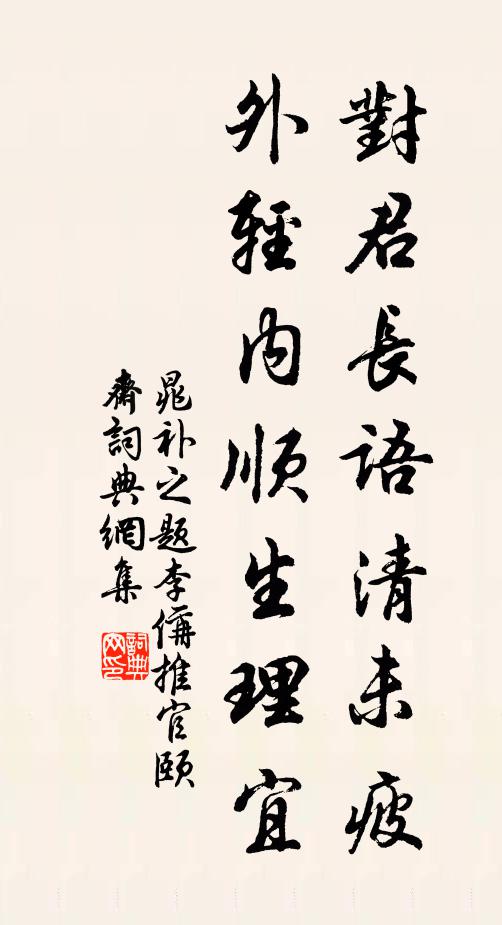 對君長語清未疲
外輕內順生理宜
晁补之题李偁推官颐
齋詞典網集
詞典
网印